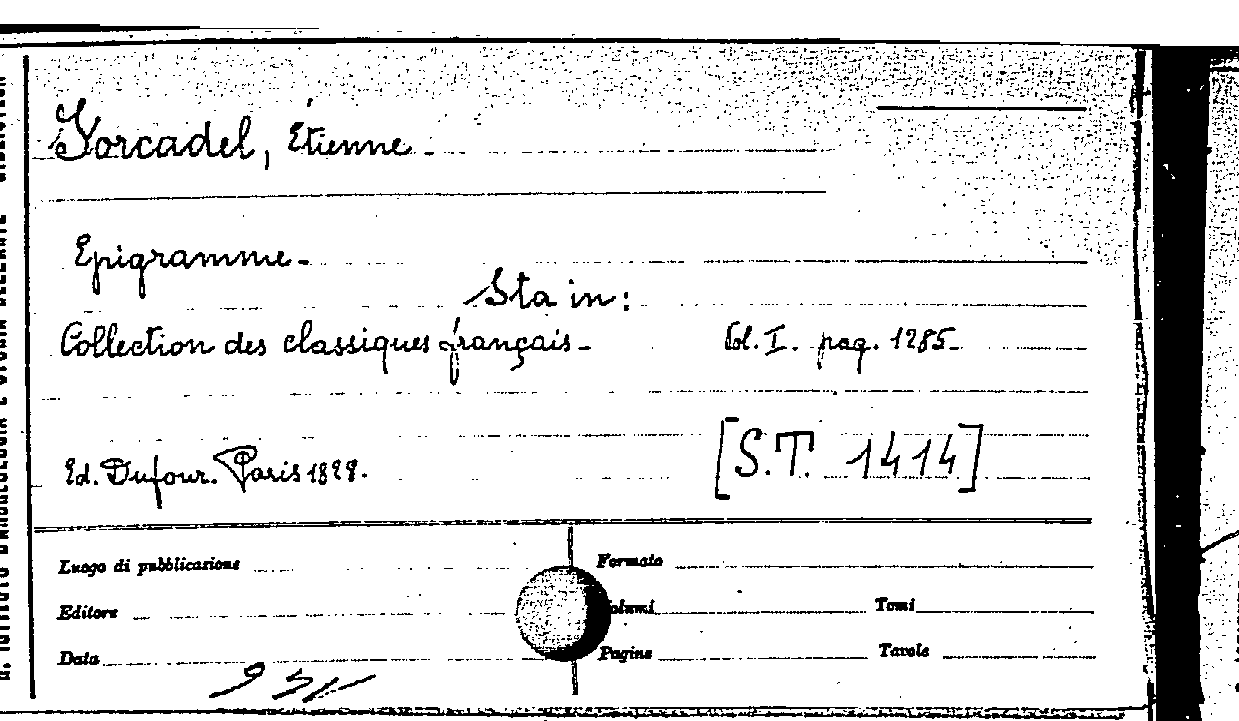 Forcadel, Étienne -
Epigramme -
Sta in:
Collection des classiques français - Vol. I. pag. 1285 -
Ed. Dufour. Paris 1828. [S.T. 1414]
Luogo di pubblicazione Formato
Editore Volumi Tomi
Data Pagine Tavole
R. ISTITUTO D'ARCHEOLOGIA E STORIA DELL'ARTE